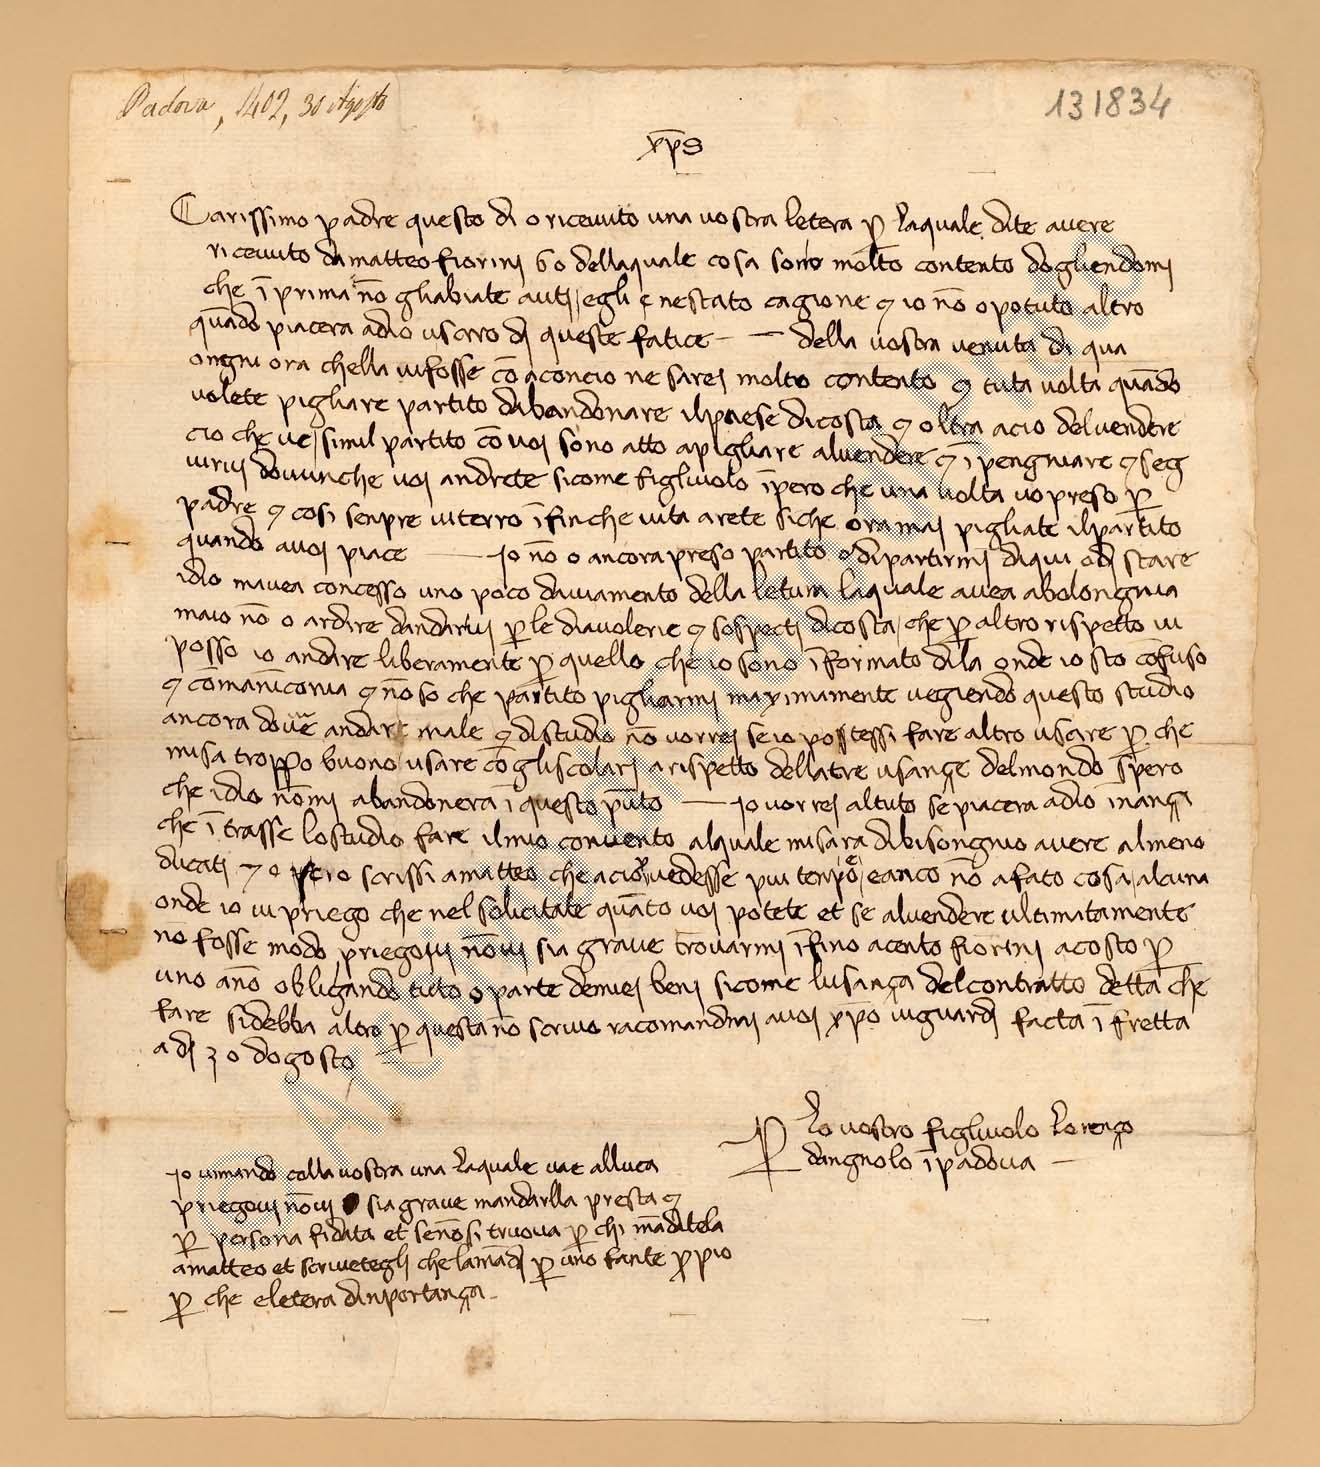 Padova, 1402, 30 Agosto
131834
xp̄s
Carissimo padre questo di o ricevuto una vostra letera p̱ laquale dite avere
ricevuto da matteo fiorinj 60 dellaquale cosa sono molto contento dogliendomj
che ī prima nō gliabiate autj egli e nestato cagione ꝯ io nō o potuto altro
quādo piacera adio uscirro dj queste fatice — — della vostra venuta di qua
ongni ora chella vi fosse cō aconcio ne sarej molto contento ꝯ tuta volta quādo
volete pigliare partito dabandonare il paese dicosta ꝯ oltra acio del vendere
cio che ve simil partito cō voj sono atto a pigliare al vendere ꝯ īpengniare ꝯ seg
virvi dovunche voj andrete sicome figliuolo īpero che una volta vo preso p̱
padre ꝯ cosi senpre viterro ī fin che vita arete siche ora maj pigliate il partito
quando avoj piace — io nō o ancora preso partito o dipartirmj diqui o dj stare
idio mavea concesso uno poco daviamento della letura laquale avea abolongnia
maio nō o ardire dandarivi p̱ le diavolerie ꝯ sospectj dicosta che p̱ altro rispetto vi
posso io andare liberamente p̱ quello che io sono īformato dila onde io sto cōfuso
ꝯ cō manicoria ꝯ nō so che partito pigliarmj maximamente vegiendo questo studio
ancora dovē andare male ꝯ distudio nō vorrej se io potessi fare altro uscire p̱ che
misa troppo buono usare cō gli scolarj a rispetto dellatre usançe del mondo spero
che idio nōmj abandonera ī questo pūto — io vorrej al tuto se piacera adio īnançi
che ītrasse lo studio fare il mio convento alquale misara dibisongnio avere almeno
ducatj 70 pero scrissi a matteo che acio vedesse piu tenpo e anco nō a fato cosa alcuna
onde io vi priego che nel solicitate quāto voj potete et se al vendere ultimatamente
no fosse modo priegovi nōvi sia grave trovarmi īfino a cento fiorinj a costo p̱
uno anō obligando tuto o parte demiej benj sicome lusança del contratto detta che
fare sidebba altro p̱ questa nō scrivo racomandmi avoj xp̄o viguardj facta ī fretta
a dj 30 dogosto
P̱ Lo vostro figliuolo Lorenço
dangnolo ī padova —
io vimando colla vostra una laquale vae alluca
priegovi nōvi sia grave mandarlla presta ꝯ
p̱ persona fidata et se nōsi truova p̱ chi māditela
a matteo et scrivetegli che la mādj p̱ uno fante p̱pio
p̱ che e letera dinportança